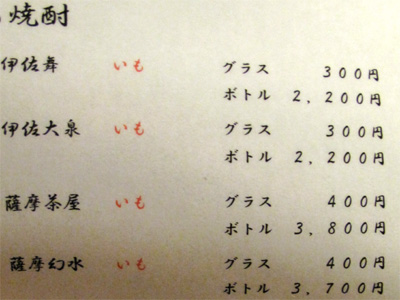 焼酎
伊佐舞 いも グラス 300円
ボトル 2,200円
伊佐大泉 いも グラス 300円
ボトル 2,200円
薩摩茶屋 いも グラス 400円
ボトル 3,800円
薩摩幻水 いも グラス 400円
ボトル 3,700円